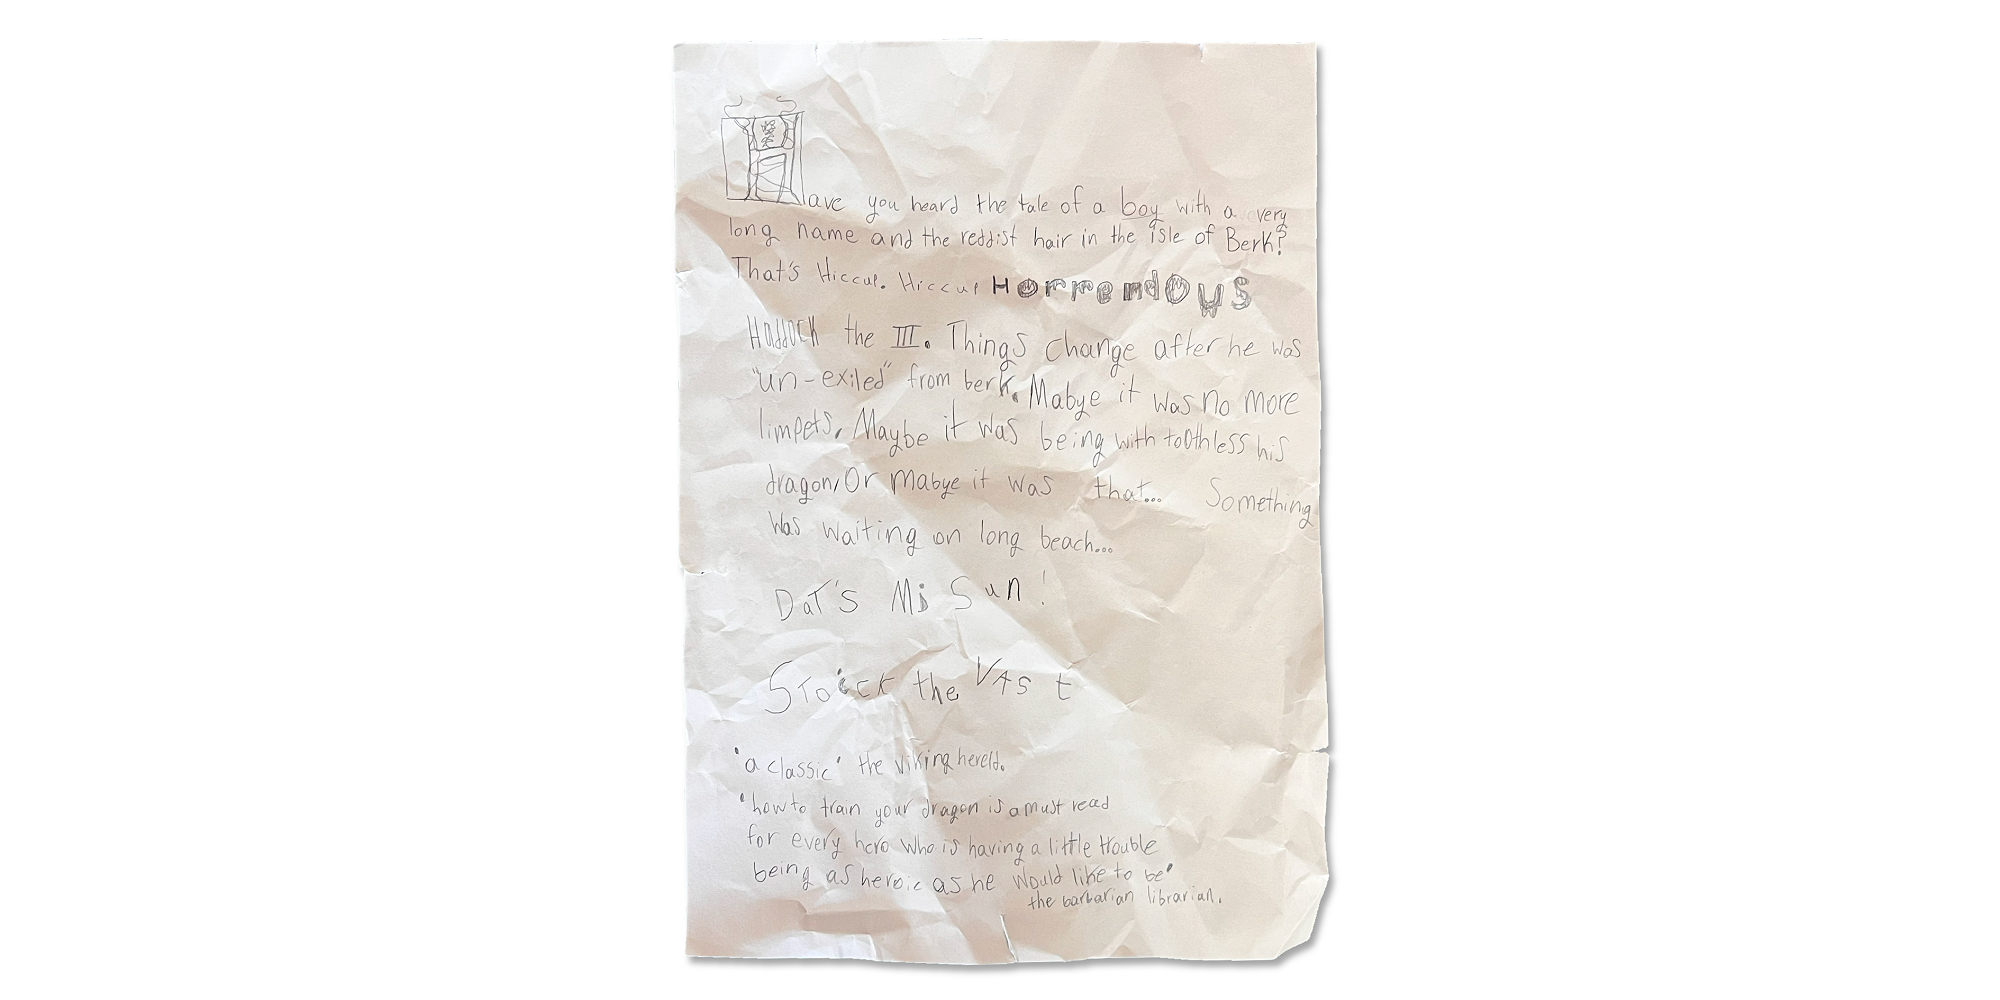 Have you heard the tale of a boy with a very
long name and the reddist hair in the isle of Berk?
That's Hiccup. Hiccup HorrendOUS
HADDOCK the III. Things change after he was
"un-exiled" from berk. Mabye it was no more
limpets, Maybe it was being with toothless his
dragon, Or mabye it was that... Something
was waiting on long beach...
DaT'S Mi Sun!
SToicK the VAST
'a classic' the viking hereld.
'how to train your dragon is a must read
for every hero who is having a little trouble
being as heroic as he would like to be'
the barbarian librarian.